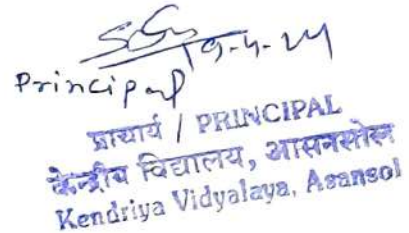 19-4-24
Principal
प्राचार्य / PRINCIPAL
केन्द्रीय विद्यालय, आसनसोल
Kendriya Vidyalaya, Asansol